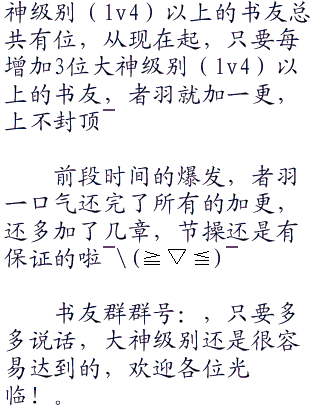 神级别（lv4）以上的书友总
共有位，从现在起，只要每
增加3位大神级别（lv4）以
上的书友，者羽就加一更，
上不封顶¯
前段时间的爆发，者羽
一口气还完了所有的加更，
还多加了几章，节操还是有
保证的啦¯\(≧▽≦)¯
书友群群号：，只要多
多说话，大神级别还是很容
易达到的，欢迎各位光
临！。